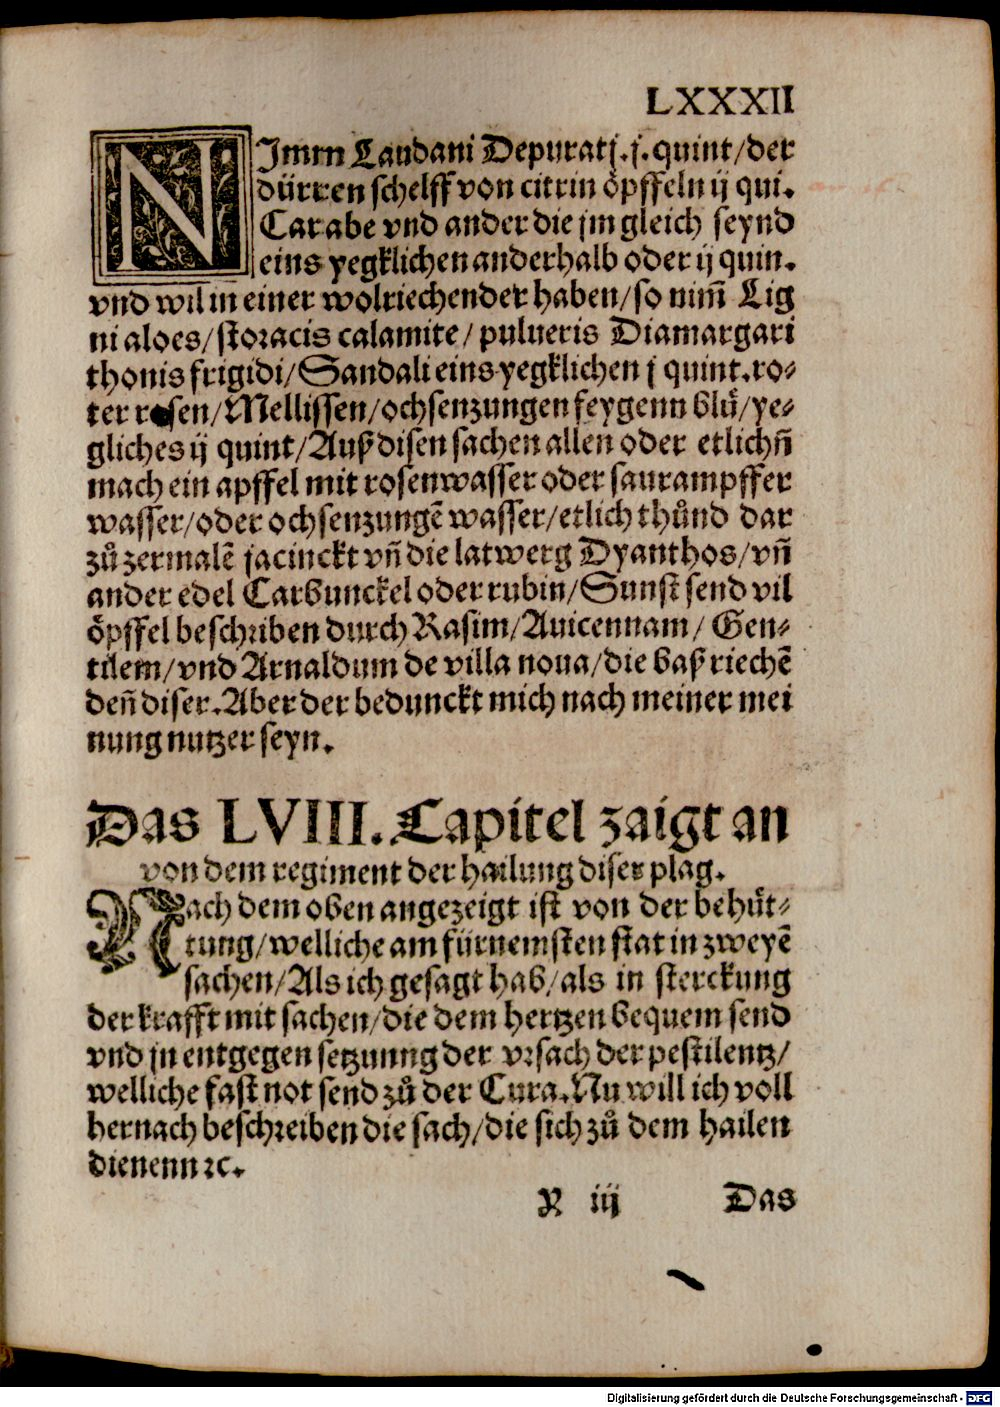 LXXXII
NImm Laudani Depuratj.j.quint/der
dürren schelff von citrin öpffeln ij qui.
Carabe vnd ander die jm gleich seynd
eins yegklichen anderhalb oder ij quin.
vnd wil in einer wolriechender haben/so nim̃ Lig
ni aloes/storacis calamite/ pulueris Diamargari
thonis frigidi/Sandali eins yegklichen j quint.ro-
ter rosen/Mellissen/ochsenzungen feygenn blüͤ/ye-
gliches ij quint/Auß disen sachen allen oder etlichñ
mach ein apffel mit rosenwasser oder saurampffer
wasser/oder ochsenzungẽ wasser/etlich thuͦnd dar
zuͦ zermalẽ jacinckt vñ die latwerg Dyanthos/vñ
ander edel Carbunckel oder rubin/Sunst send vil
öpffel beschriben durch Rasim/Auicennam/ Gen-
tilem/vnd Arnaldum de villa noua/die baß riechẽ
deñ diser.Aber der bedunckt mich nach meiner mei
nung nutzer seyn.
Das LVIII. Capitel zaigt an
von dem regiment der hailung diser plag.
Nach dem oben angezeigt ist von der behuͤt-
tung/welliche am fürnemsten stat in zweyẽ
sachen/Als ich gesagt hab/als in sterckung
der krafft mit sachen/die dem hertzen bequem send
vnd jn entgegen setzunng der vrsach der pestilentz/
welliche fast not send zuͦ der Cura.Nu will ich voll
hernach beschreiben die sach/die sich zuͦ dem hailen
dienenn ꝛc.
X iij Das
Digitalisierung gefördert durch die Deutsche Forschungsgemeinschaft - DFG